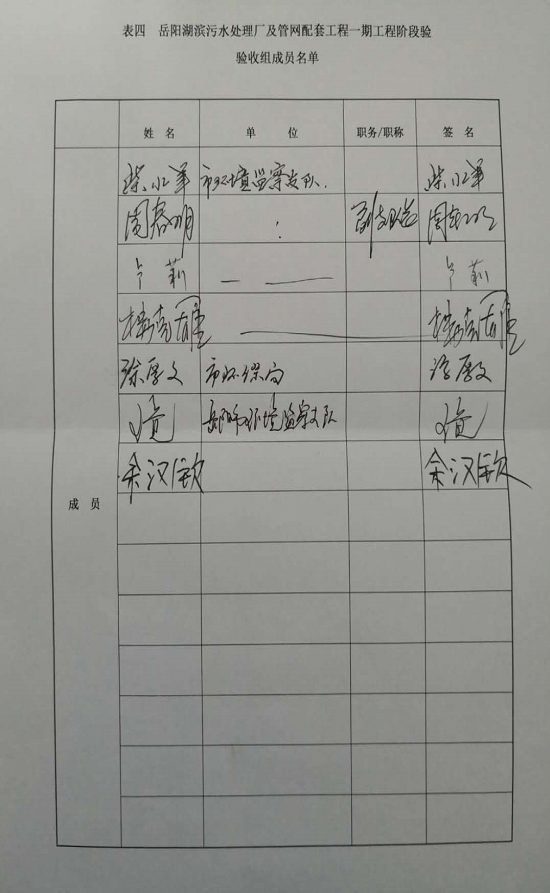 表四 岳阳湖滨污水处理厂及管网配套工程一期工程阶段验
验收组成员名单
姓 名 单 位 职务/职称 签 名
市环境监察支队
周春明 副支队长
卢莉 卢莉
徐厚文 市环保局 徐厚文
岳阳市环境监察支队
余汉钦 余汉钦
成 员